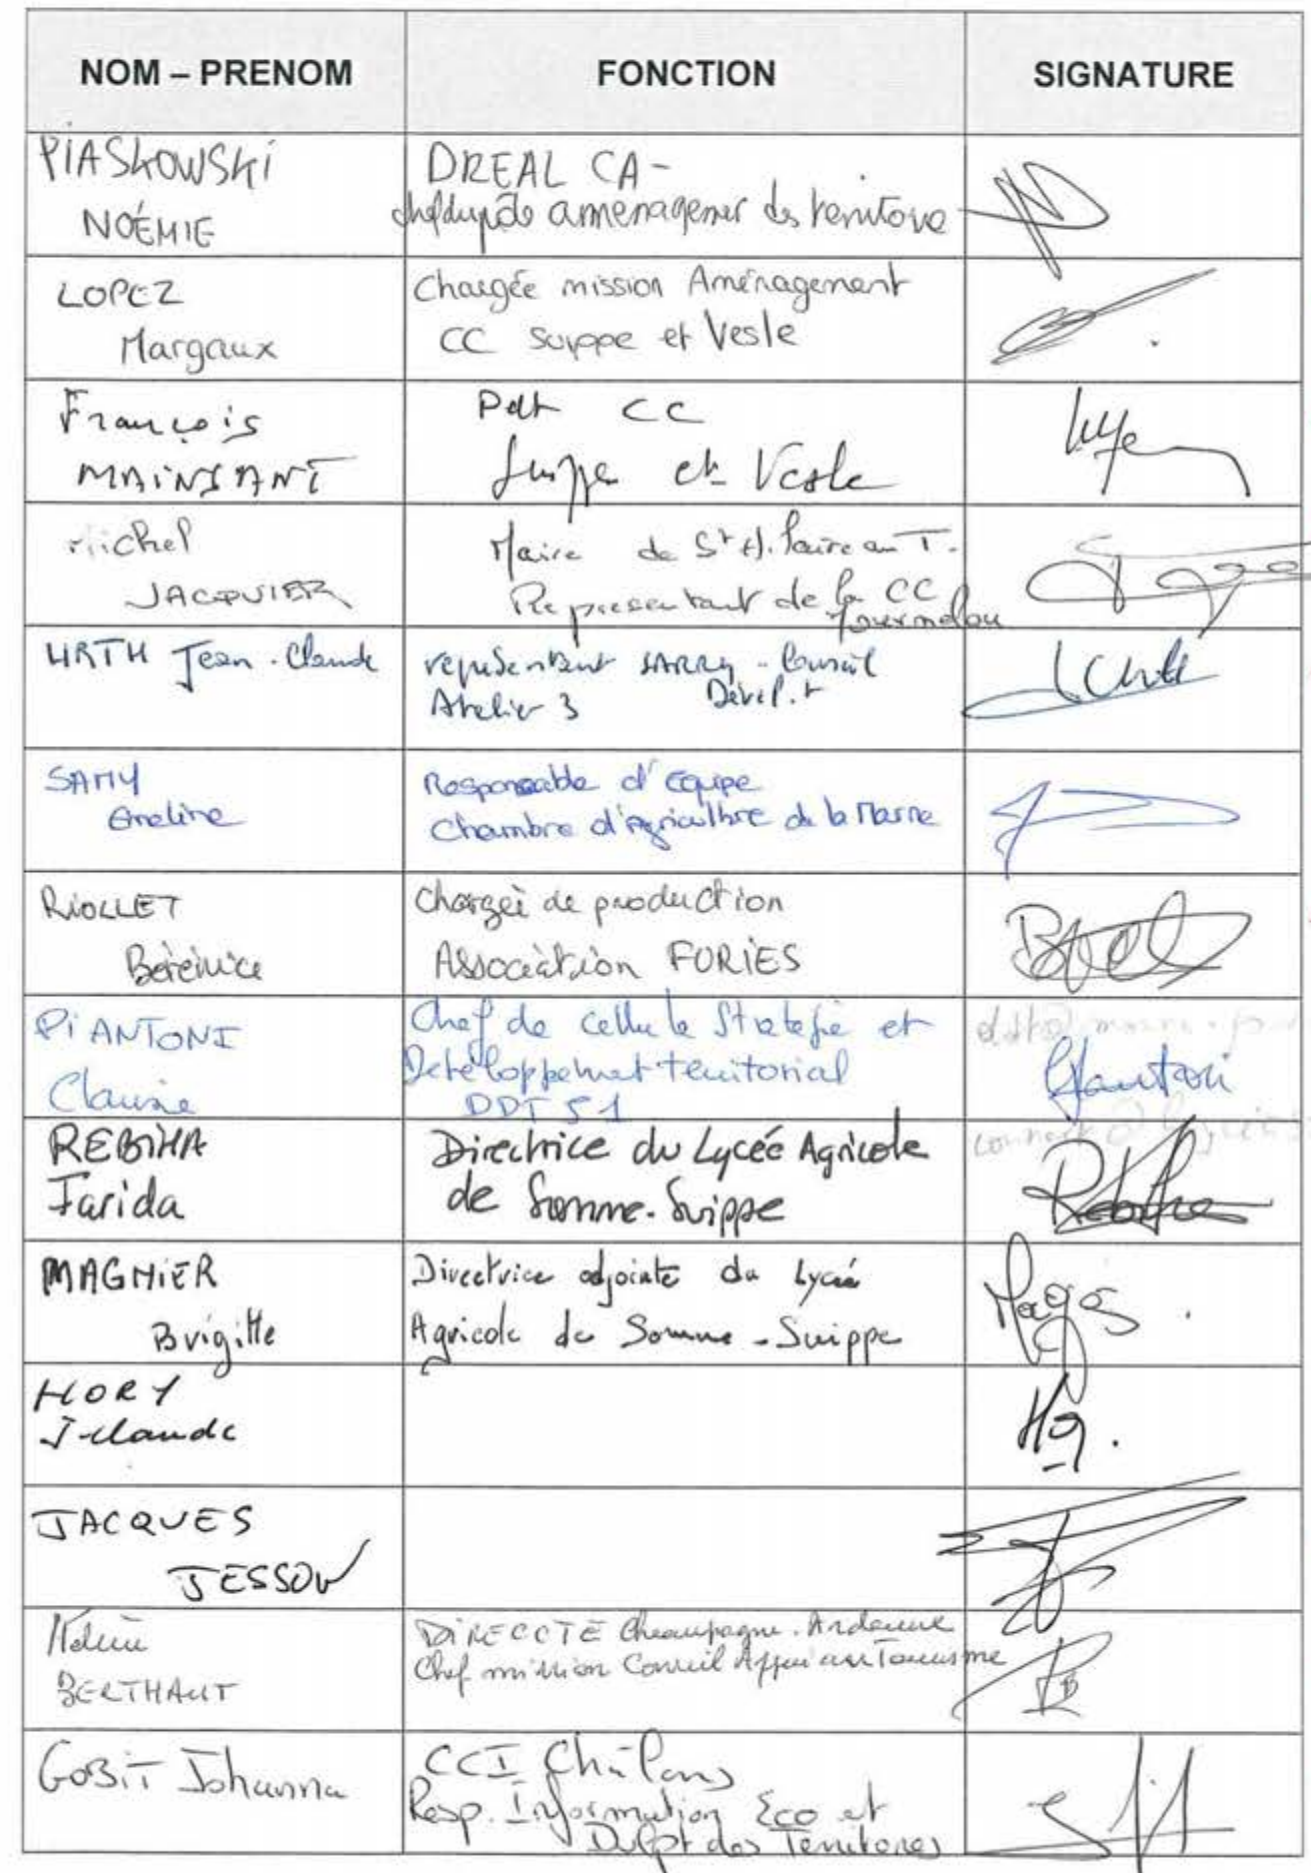 NOM – PRENOM FONCTION SIGNATURE
PIASKOWSKI
NOÉMIE
DREAL CA-
chef du pôle aménagement des territoire
LOPEZ
Margaux
Chargée mission Aménagement
CC Suippe et Vesle
François
MAINSANT
Pdt CC
Suippe et Vesle
Michel
JACQUIER
Maire de St Hilaire au T.
Representant de la CC
Mourmelon
URTH Jean-Claude
représentant SARRY - Conseil
Atelier 3 Dével.t
SAMY
Emeline
Responsable d'équipe
Chambre d'Agriculture de la Marne
RIOLLET
Bérénice
Chargée de production
Association FURIES
PIANTONI
Chef de cellule Stratégie et
Développement territorial
DDT 51
REBIHA
Farida
Directrice du Lycée Agricole
de Somme-Suippe
MAGNIER
Brigitte
Directrice adjointe du Lycée
Agricole de Somme-Suippe
HORY
J-Claude
JACQUES
JESSON
BERTHAUT
DIRECCTE Champagne-Ardenne
Chef mission Conseil Appui au Tourisme
GOBIT Johanna
CCI Châlons
Resp. Information Eco et
Dvlpt des Territoires